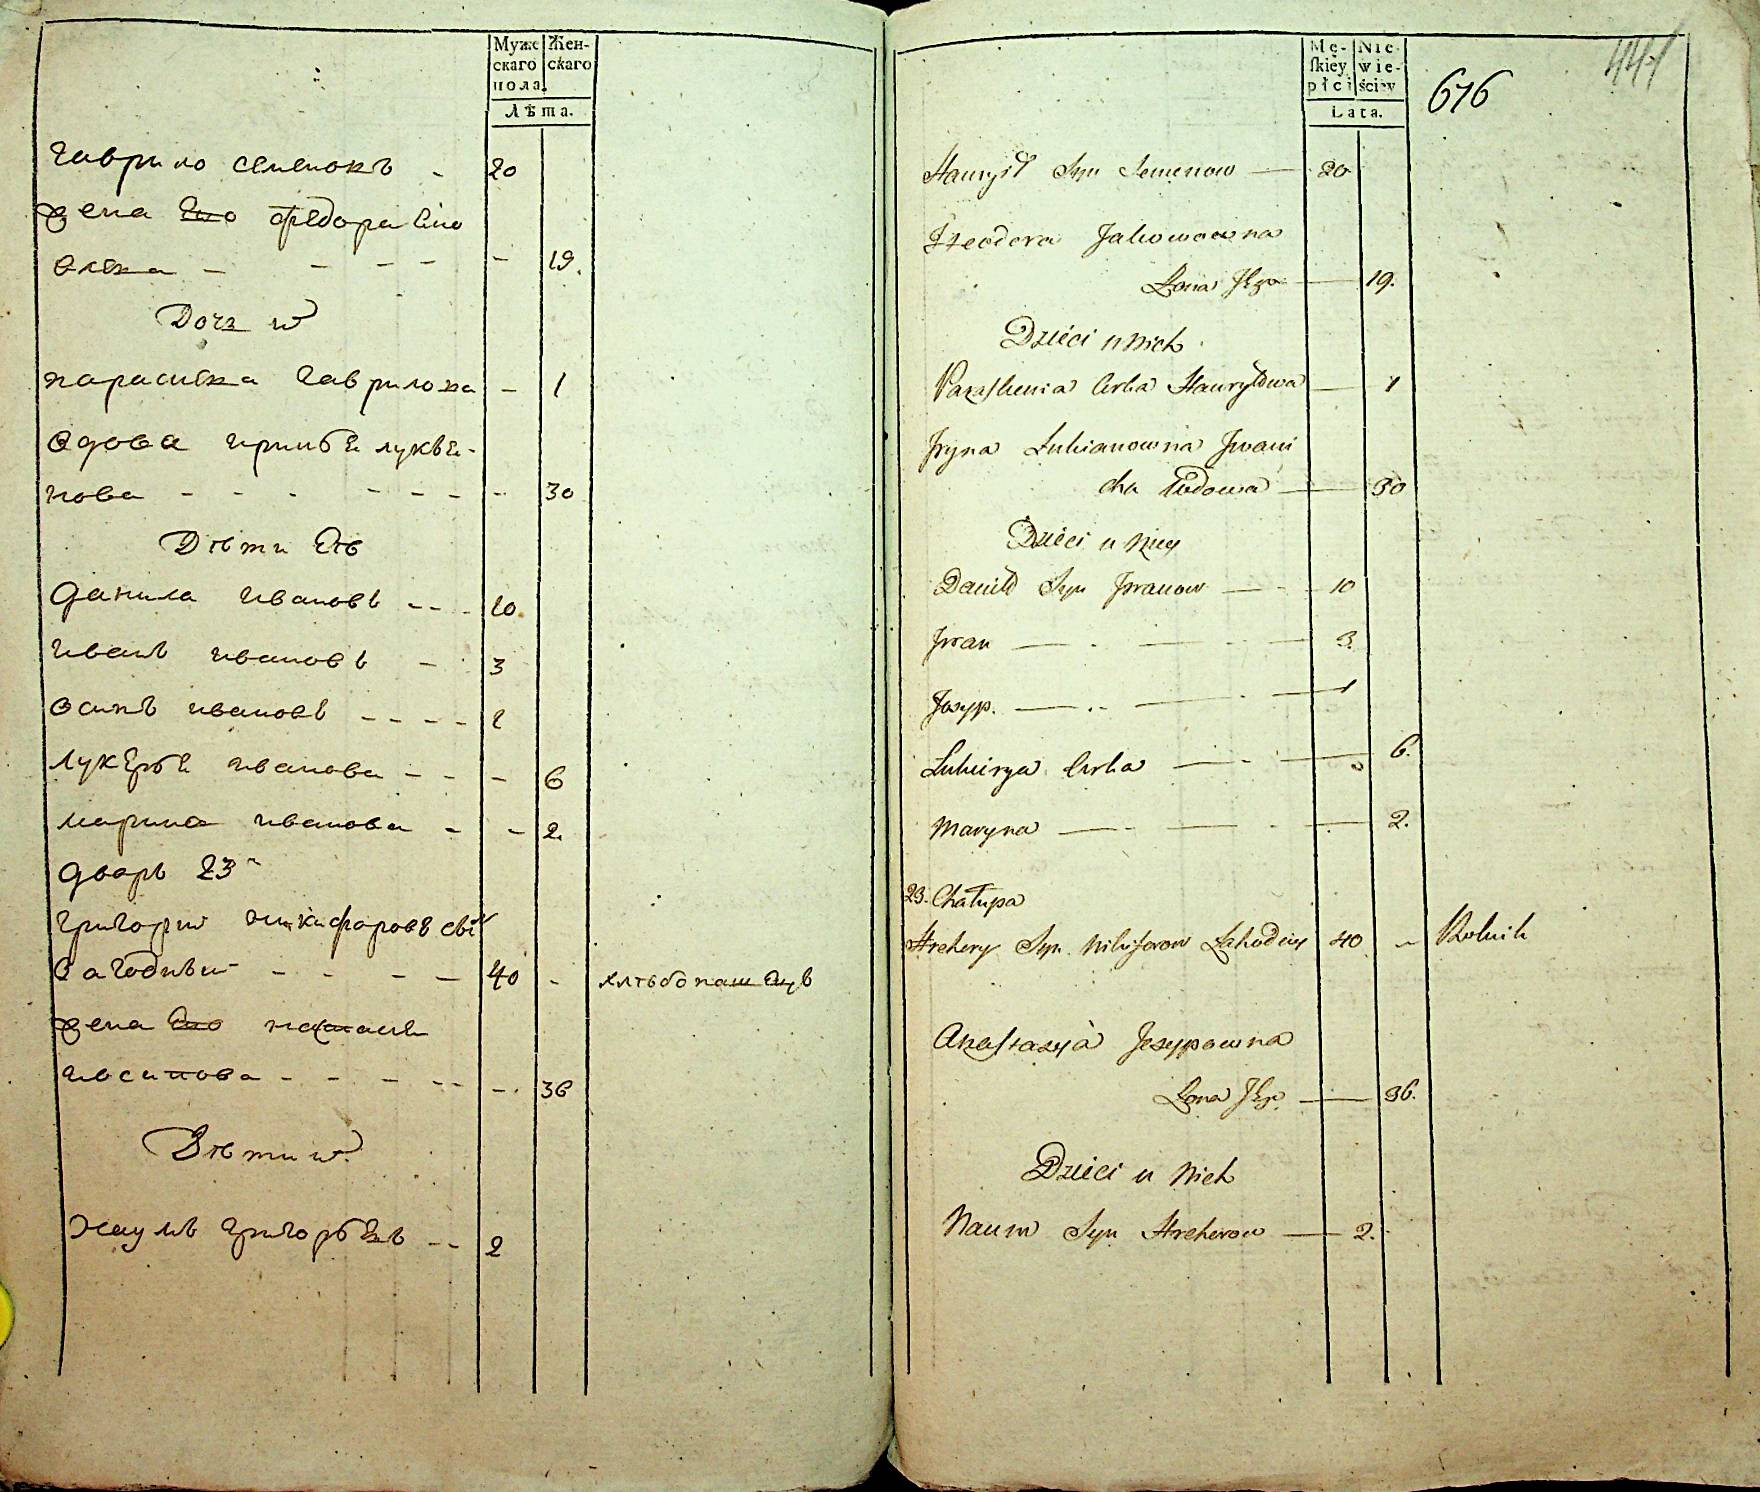 Муже
скаго
пола.
Жен-
скаго
Лѣта.
гаврило семенокъ - 20
жена Его федора Яко
влева - - - - - 19.
Дочь их
парасивка гаврилова - 1
вдова ирина лукья-
нова - - - - - - - 30
Дѣти Еѣ
данила ивановъ - - - 10
иванъ ивановъ - 3
осипъ ивановъ - - - - 1
лукерья иванова - - - 6
марина иванова - - 2
дворъ 23
григорий никифоровъ сынъ
загодный - - - - 40 - хлѣбопашецъ
жена Его настасия
иосипова - - - - - - 36
Дѣти их
наумъ григорьевъ - - 2
Mę-
skiey
płci
Nie
wie-
ściey
Lata.
616
441
Hauryił Syn Semenow — 20
Fteodora Jakowowna
Żona Jego — 19.
Dzieci u nich
Paraskewia Córka Hauryłowa — 1
Iryna Lukianowna Iwani
cha Wdowa — 30
Dzieci u Niey
Daniło Syn Iwanow — 10
Iwan — 3.
Josyp. — 1
Lukirya Córka — 6.
Maryna — 2.
23. Chałupa
Hrehory Syn Nikiforow Zahodny 40 - Rolnik
Anastasyia Jesypowna
Żona Jego — 36.
Dzieci u Nich
Naum Syn Hrehorow — 2.